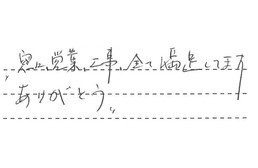 実に、営業、工事、全て満足してます
ありがとう。